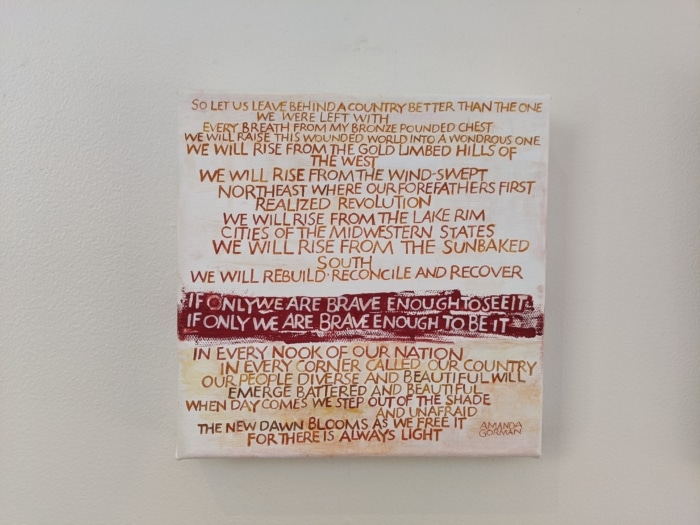 SO LET US LEAVE BEHIND A COUNTRY BETTER THAN THE ONE
WE WERE LEFT WITH
EVERY BREATH FROM MY BRONZE POUNDED CHEST
WE WILL RAISE THIS WOUNDED WORLD INTO A WONDROUS ONE
WE WILL RISE FROM THE GOLD LIMBED HILLS OF
THE WEST
WE WILL RISE FROM THE WIND-SWEPT
NORTHEAST WHERE OUR FOREFATHERS FIRST
REALIZED REVOLUTION
WE WILL RISE FROM THE LAKE RIM
CITIES OF THE MIDWESTERN STATES
WE WILL RISE FROM THE SUNBAKED
SOUTH
WE WILL REBUILD·RECONCILE AND RECOVER
IF ONLY WE ARE BRAVE ENOUGH TO SEE IT
IF ONLY WE ARE BRAVE ENOUGH TO BE IT
IN EVERY NOOK OF OUR NATION
IN EVERY CORNER CALLED OUR COUNTRY
OUR PEOPLE DIVERSE AND BEAUTIFUL WILL
EMERGE BATTERED AND BEAUTIFUL
WHEN DAY COMES WE STEP OUT OF THE SHADE
AND UNAFRAID
THE NEW DAWN BLOOMS AS WE FREE IT
FOR THERE IS ALWAYS LIGHT
AMANDA
GORMAN